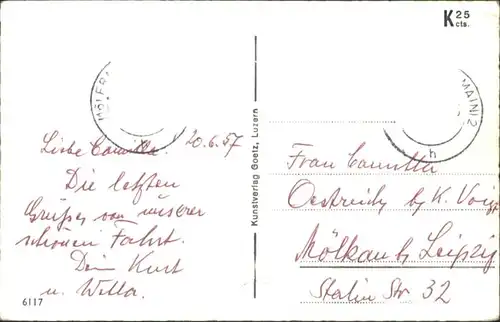 K 25
cts.
WÖLFER
MAIN) 2
h
20.6.57
Liebe Camilla.
Die letzten
Grüße von unserer
schönen Fahrt.
Dein Kurt
u. Willa.
6117
Kunstverlag Goetz, Luzern
Frau Camilla
Oestreich by K. Voigt
Mölkau b/ Leipzig
Stalin Str 32